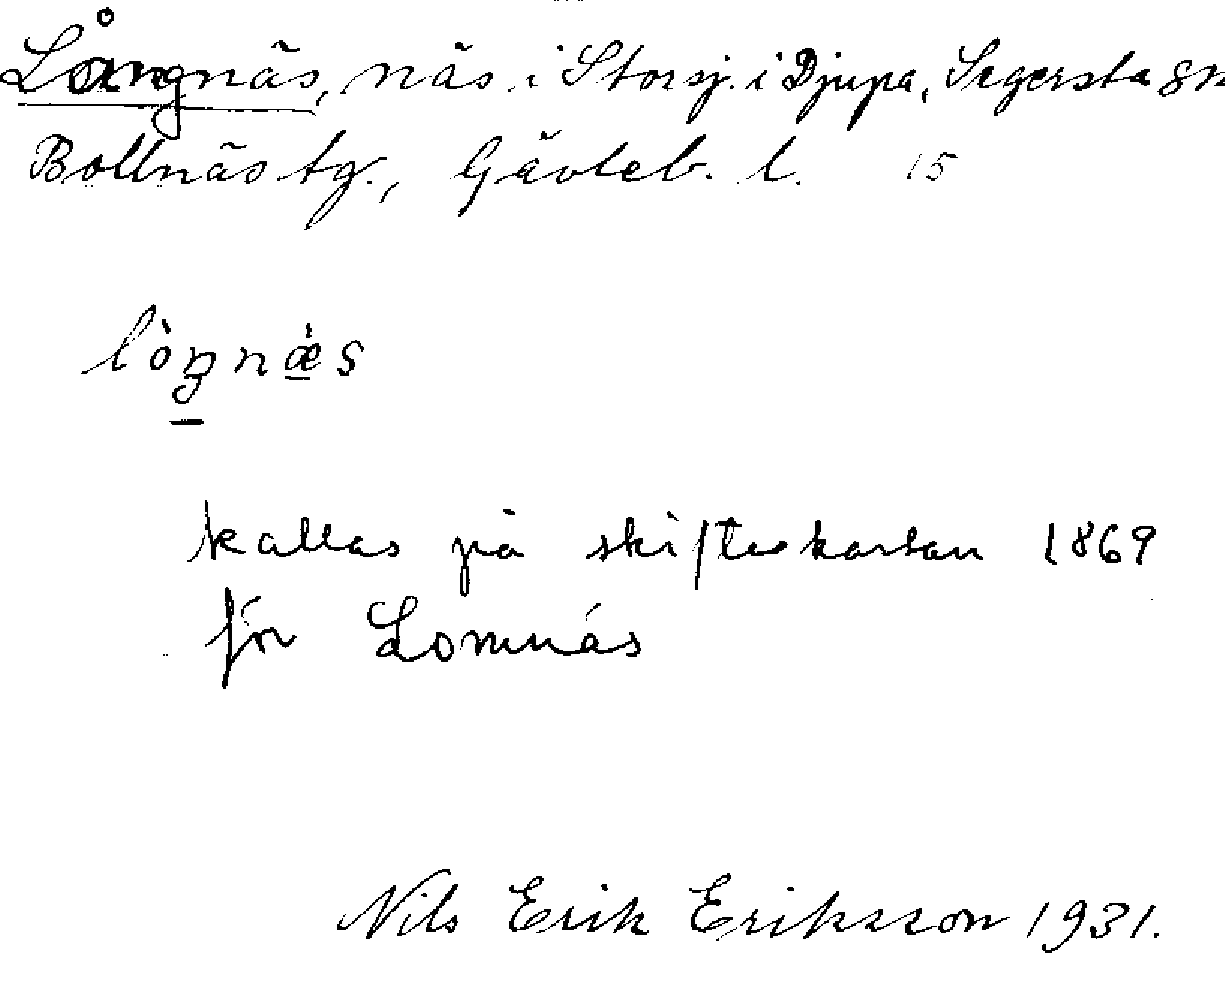 Långnäs, näs i Storsj. i Djupa, Segersta sn
Bollnäs tg., Gävleb. l. 15
kallas på skifteskartan 1869
för Lomnäs
Nils Erik Eriksson 1931.